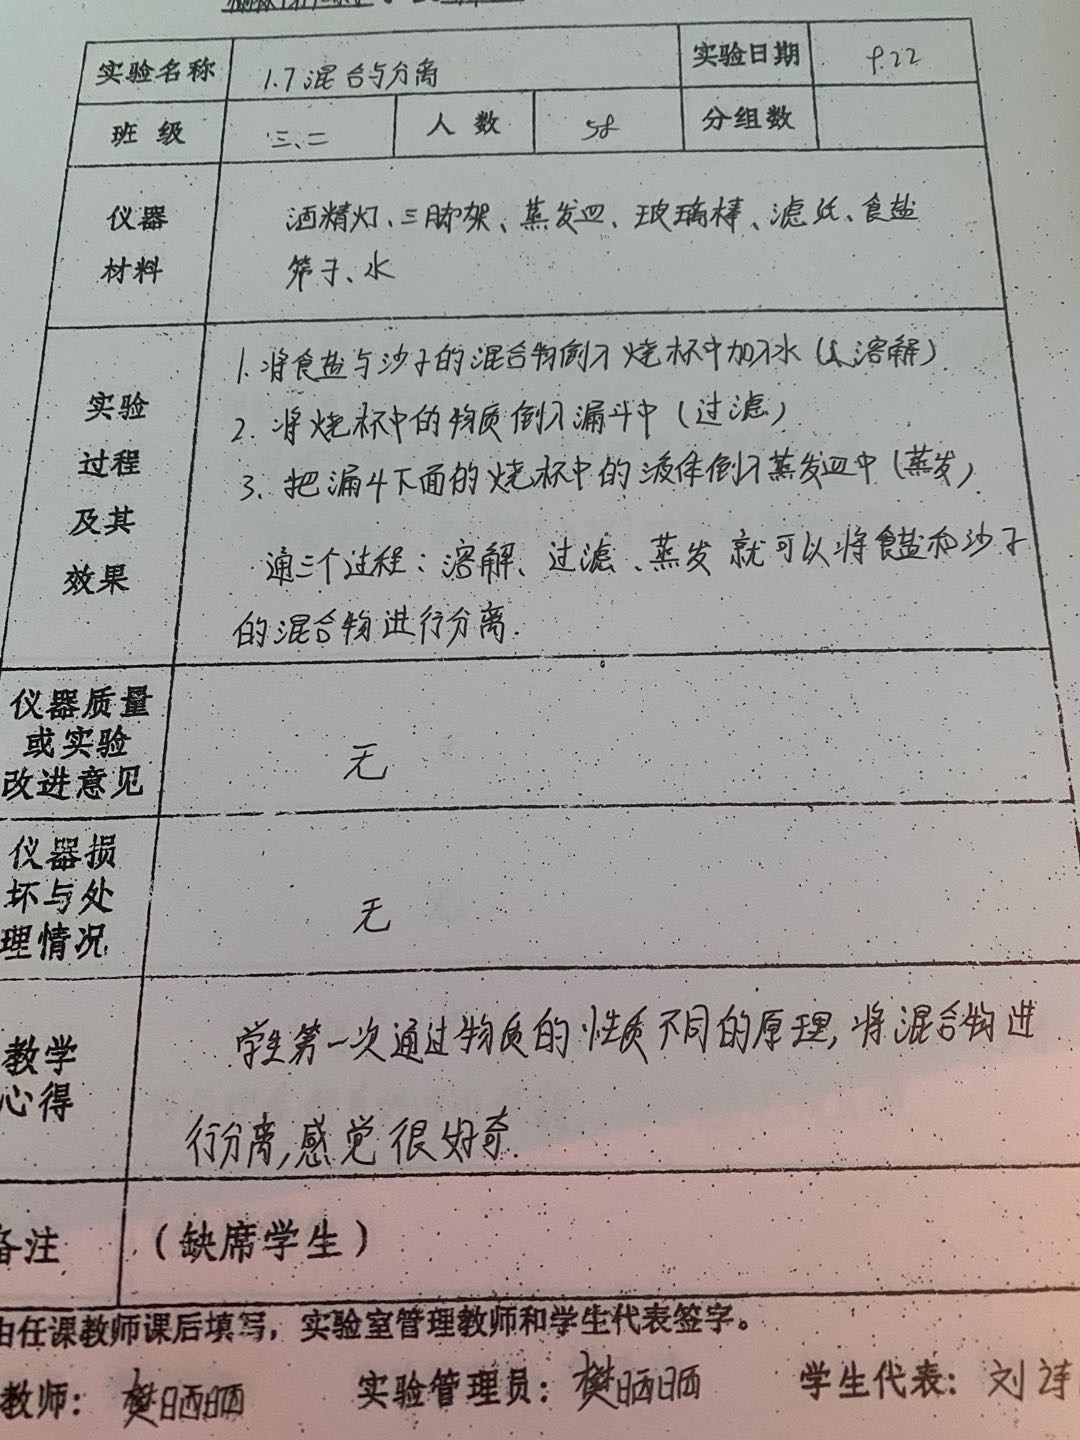 实验名称 1.7混合与分离 实验日期 9.22
班级 三、二 人数 58 分组数
仪器材料 酒精灯、三脚架、蒸发皿、玻璃棒、滤纸、食盐
筛子、水
实验过程及其效果 1. 将食盐与沙子的混合物倒入烧杯中加入水(溶解)
2. 将烧杯中的物质倒入漏斗中(过滤)
3. 把漏斗下面的烧杯中的液体倒入蒸发皿中(蒸发)
通三个过程:溶解、过滤、蒸发就可以将食盐和沙子
的混合物进行分离.
仪器质量或实验改进意见 无
仪器损坏与处理情况 无
教学心得 学生第一次通过物质的性质不同的原理,将混合物进
行分离,感觉很好奇.
备注 (缺席学生)
由任课教师课后填写,实验室管理教师和学生代表签字。
教师: 樊晒晒 实验管理员: 樊晒晒 学生代表: 刘诗